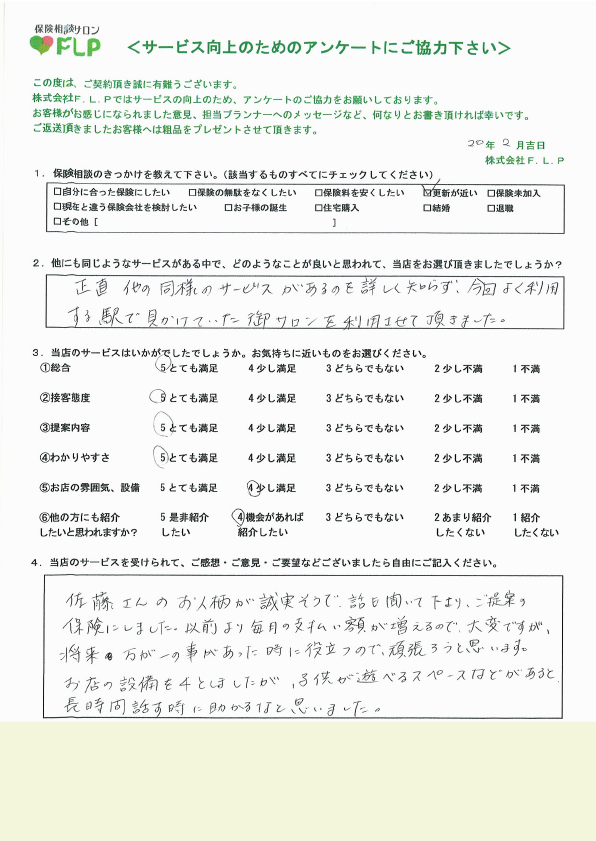 保険相談サロン
FLP
＜サービス向上のためのアンケートにご協力下さい＞
この度は、ご契約頂き誠に有難うございます。
株式会社Ｆ.Ｌ.Ｐではサービスの向上のため、アンケートのご協力をお願いしております。
お客様がお感じになられました意見、担当プランナーへのメッセージなど、何なりとお書き頂ければ幸いです。
ご返送頂きましたお客様へは粗品をプレゼントさせて頂きます。
20年 2 月吉日
株式会社Ｆ.Ｌ.Ｐ
１．保険相談のきっかけを教えて下さい。（該当するものすべてにチェックしてください）
□自分に合った保険にしたい □保険の無駄をなくしたい □保険料を安くしたい ☑更新が近い □保険未加入
□現在と違う保険会社を検討したい □お子様の誕生 □住宅購入 □結婚 □退職
□その他 [ ]
２．他にも同じようなサービスがある中で、どのようなことが良いと思われて、当店をお選び頂きましたでしょうか？
正直 他の同様のサービスがあるのを詳しく知らず、今回よく利用
する駅で見かけていた御サロンを利用させて頂きました。
３．当店のサービスはいかがでしたでしょうか。お気持ちに近いものをお選びください。
①総合 ５とても満足 ４少し満足 ３どちらでもない ２少し不満 １不満
②接客態度 ５とても満足 ４少し満足 ３どちらでもない ２少し不満 １不満
③提案内容 ５とても満足 ４少し満足 ３どちらでもない ２少し不満 １不満
④わかりやすさ ５とても満足 ４少し満足 ３どちらでもない ２少し不満 １不満
⑤お店の雰囲気、設備 ５とても満足 ４少し満足 ３どちらでもない ２少し不満 １不満
⑥他の方にも紹介 ５是非紹介 ４機会があれば ３どちらでもない ２あまり紹介 １紹介
したいと思われますか？ したい 紹介したい したくない したくない
４．当店のサービスを受けられて、ご感想・ご意見・ご要望などございましたら自由にご記入ください。
佐藤さんのお人柄が誠実そうで、話も聞いて下さり、ご提案の
保険にしました。以前より毎月の支払い額が増えるので、大変ですが、
将来 万が一の事があった時に役立つので、頑張ろうと思います。
お店の設備を4としましたが、子供が遊べるスペースなどがあると、
長時間話す時に助かるなと思いました。